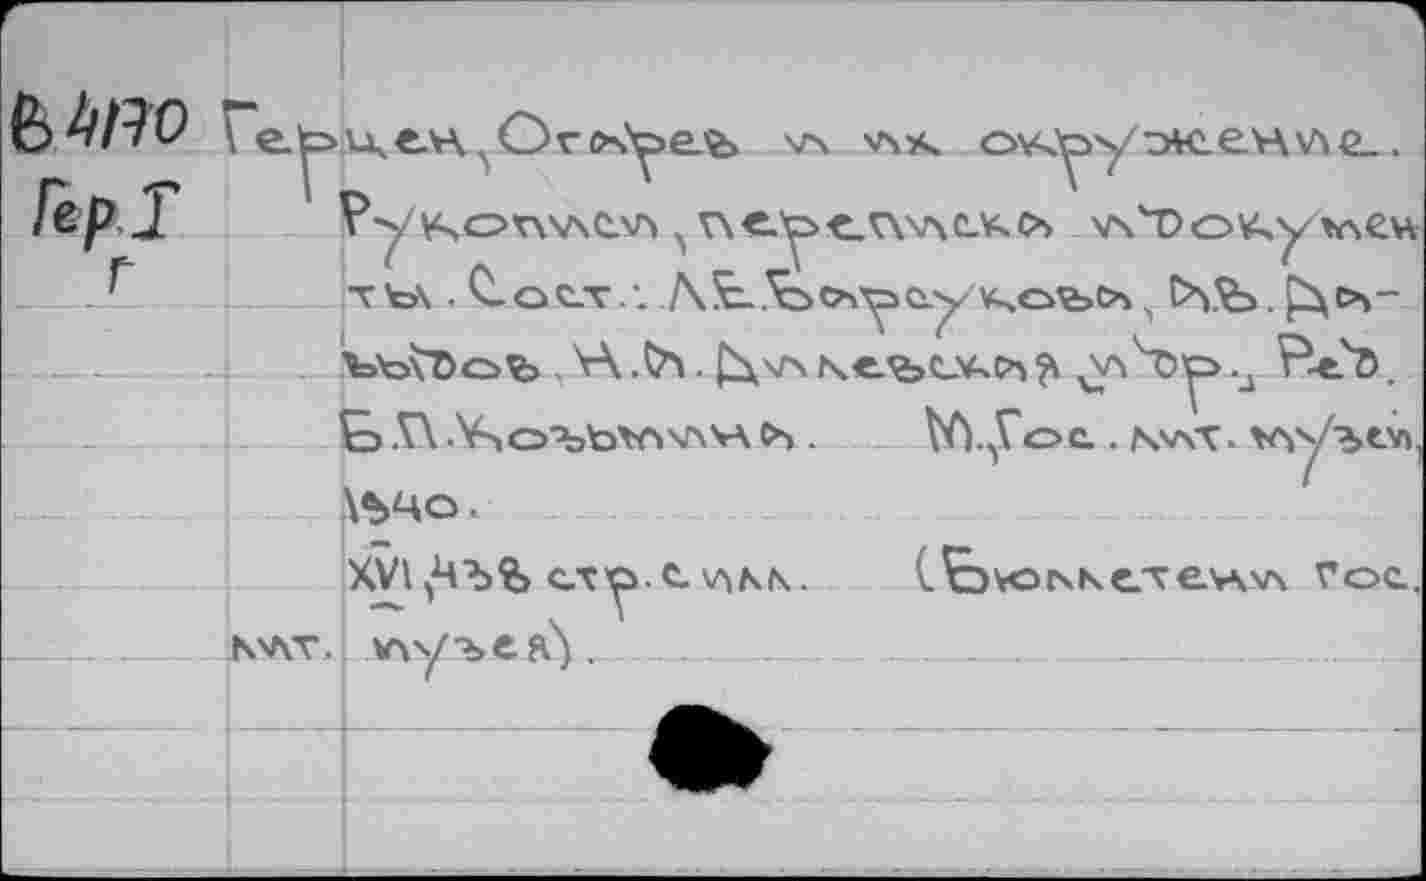 В4/ПО Герцен, Огарев и их окружение.
Гер.I Рукописи, переписка и докумен
Г ты. Сост.: Л.Е.Барсукова, А.В.Да-
выдов, Н.А.Дилевская [и др.] Ред.
Б.П.Козьмина. М., Гос. лит. музей,
1940.
XVI, 433 стр. с илл. (Бюллетени Гос.
лит. музея).